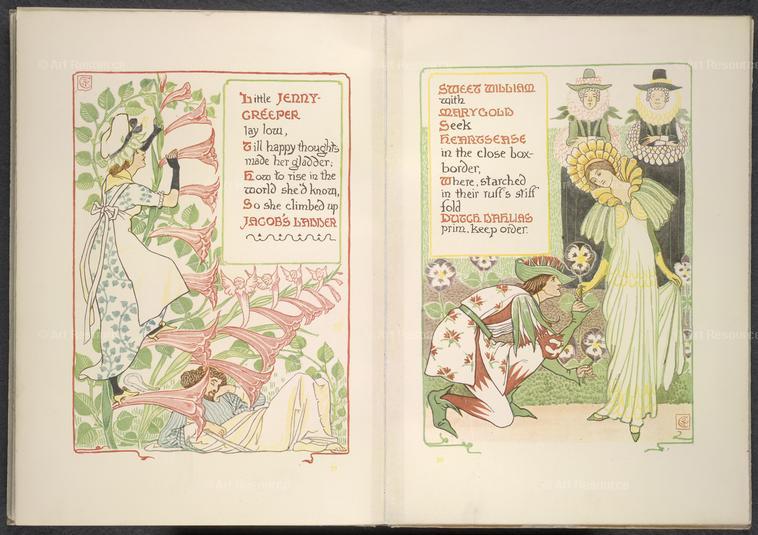 Little JENNY-
CREEPER
lay low,
Till happy thoughts
made her gladder;
How to rise in the
world she'd known,
So she climbed up
JACOB'S LADDER
SWEET WILLIAM
with
MARYGOLD
Seek
HEARTSEASE
in the close box-
border,
Where, starched
in their ruff's stiff
fold
DUTCH DAHLIAS
prim, keep order.
© Art Resource
© Art Resource
© Art Resource
© Art Resource
© Art Resource
© Art Resource
© Art Resource
© Art Resource